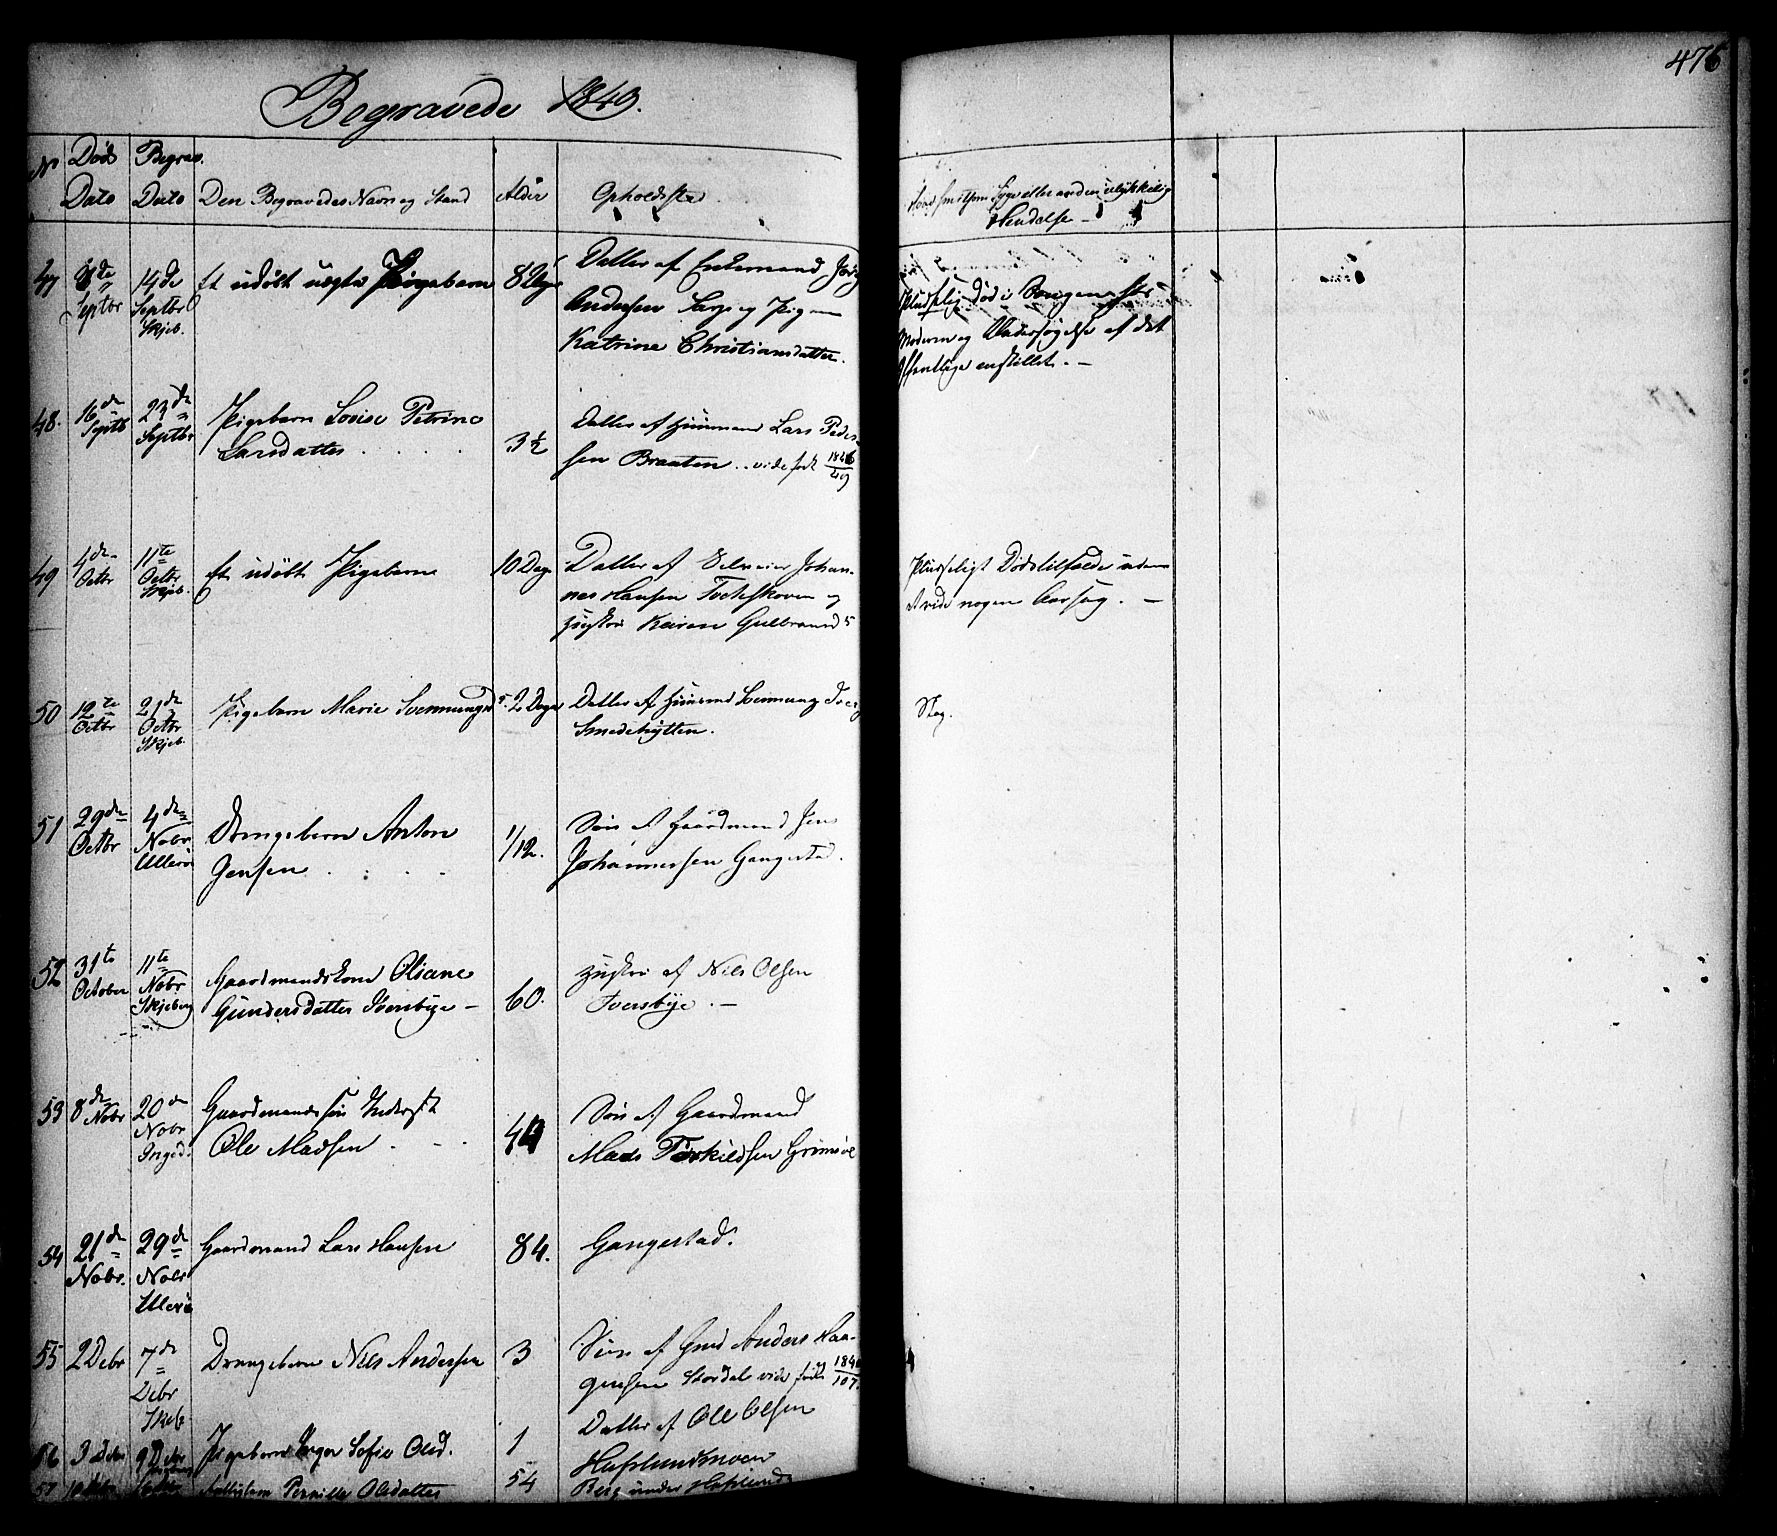 476
Begravede 1849.
No Døds Dato Begrav. Dato Den Begravedes Navn og Stand Alder Opholdsted
Sygdom eller anden ulykkelig
Hendelse –
47 8de Septbr 14de Septbr Skjeb. Et udøbt uægte Pigebarn 8 Dage
Datter af Enkemand
Andersen og Pige
Katrine Christiansdatter.
Pludselig Død i Sengen hos
Moderen og Undersøgelse af det
Offentlige anstillet. –
48. 16de Septb 23de Septbr Pigebarn Lovise Petrine
Larsdatter . . . . 3 1/2
Datter af Huusmand Lars Peder-
sen Braaten .. vide født 1846/49
49 4de Octbr 11te Octbr Skjeb. Et udøbt Pigebarn 10 Dage
Datter af Selveier Johan-
nes Hansen Torteskoven og
Hustru Karen Gulbrands
Pludseligt Dødstilfælde uden
at vide nogen Aarsag. –
50 12te Octbr 21de Octbr Skjeb. Pigebarn Marie Svennungsd 2 Dage
Datter af Huusmd Svennung
Smedehytten.
Slag.
51 29de Octbr 4de Nobr Ullerø Drengebarn Anton
Jensen . . . . 1/12.
Søn af Gaardmand Jens
Johannessen Gangestad.
52 31te October 11te Nobr Skjeberg Gaardmandskone Oliane
Gundersdatter Iversbye – 60.
Hustru af Nils Olsen
Iversbye . –
53 8de Nobr 20de Nobr Inged. Gaardmandssøn Inderst
Ole Madsen . – . 44
Søn af Gaardmand
Mads Torkildsen Grimsøe
54 21de Nobr. 29de Nobr Ullerø Gaardmand Lars Hansen 84. Gangestad.
55 2 Debr 7de Debr Skjeb Drengebarn Nils Andersen 3
Søn af Gmd Anders Haa-
gensen Stordal vide født 1846/107
56 3 Debr 9 Debr Pigebarn Inger Sofie Olsd. 1
Datter af Ole Olsen
Hafslundsmoen
57 Pernille Olsdatter 54 Berg under Hafslund